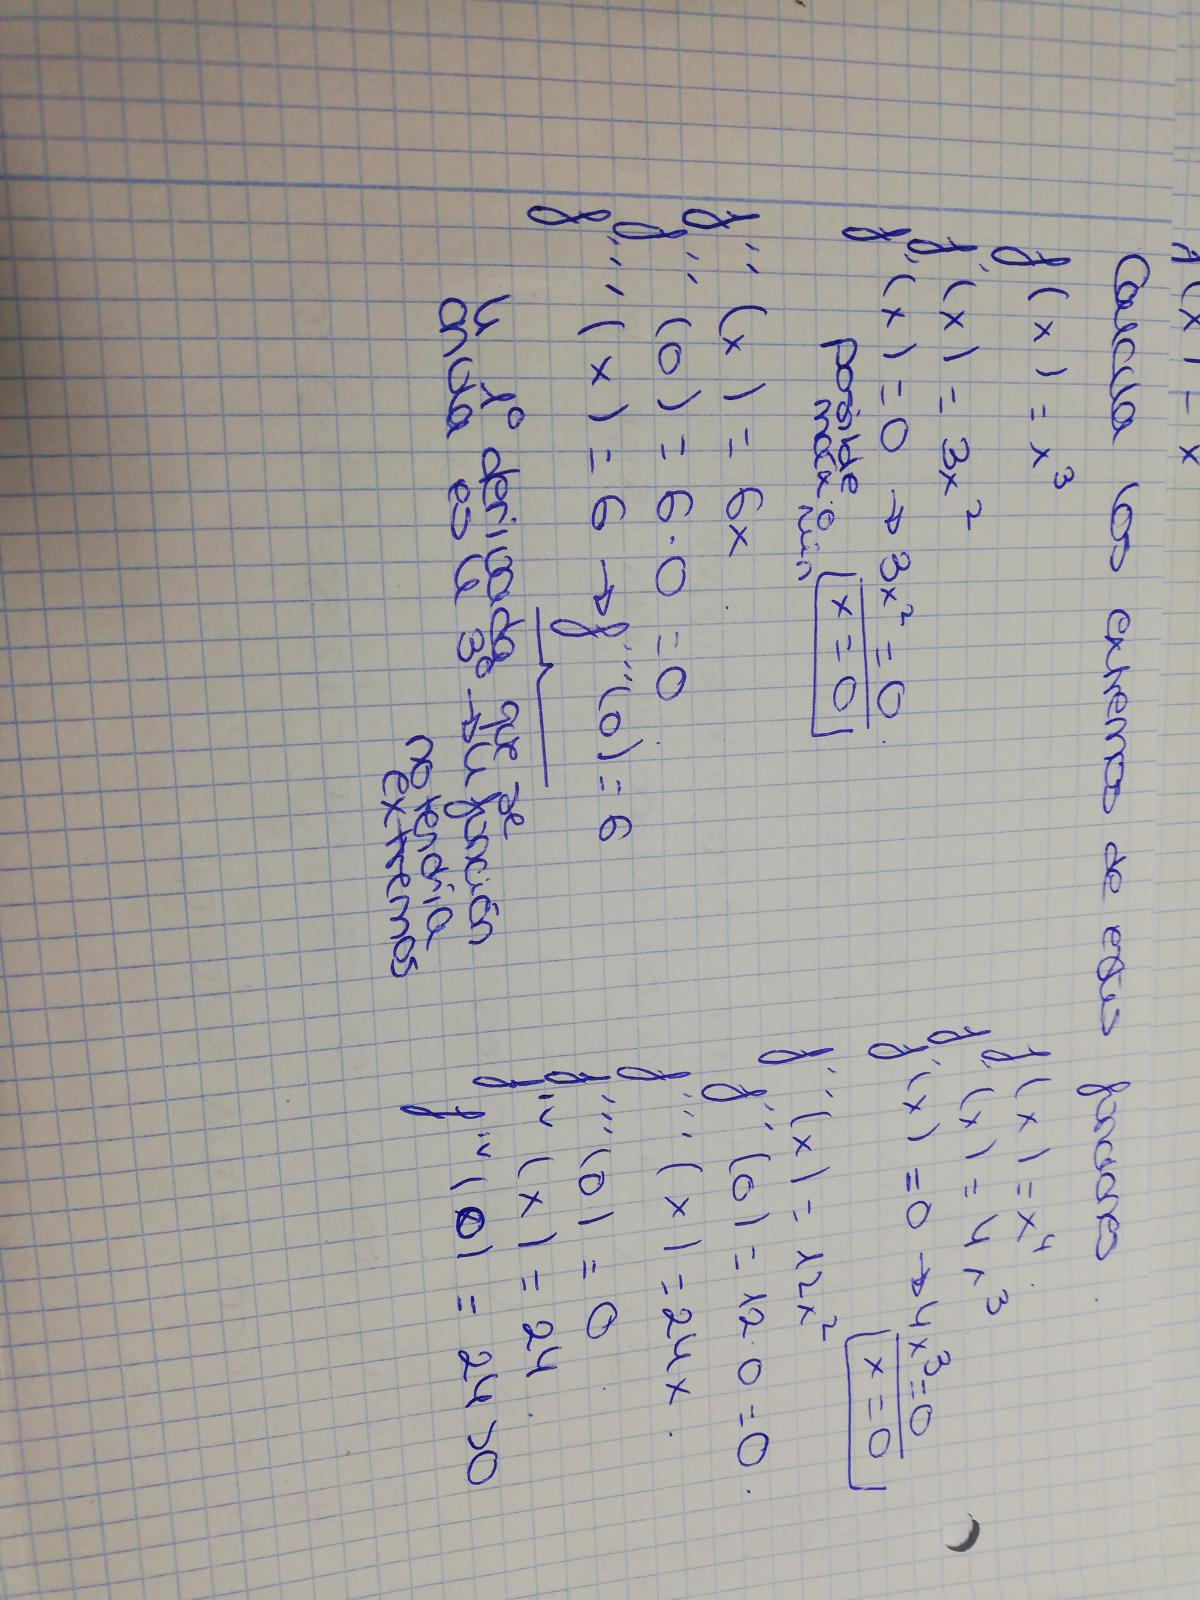 Calcula los extremos de estas funciones
f(x) = x³
f'(x) = 3x²
f'(x) = 0 → 3x² = 0
posible máx. o mín
x = 0
f''(x) = 6x
f''(0) = 6·0 = 0
f'''(x) = 6 → f'''(0) = 6
la 1ª derivada que se
anula es la 3ª → la función
no tendría
extremos
f(x) = x⁴
f'(x) = 4x³
f'(x) = 0 → 4x³ = 0
x = 0
f''(x) = 12x²
f''(0) = 12·0 = 0
f'''(x) = 24x
f'''(0) = 0
f iv (x) = 24
f iv (0) = 24 > 0